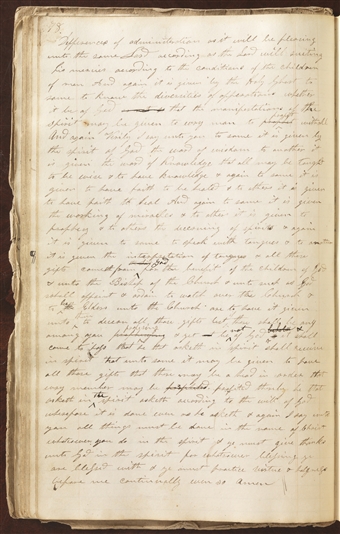 78
differences of administration as it will be pleasing
unto the same Lord according as the Lord will suiting
his mercies according to the conditions of the children
of men And again it is given by the Holy Ghost to
some to know the diversities of opperations whether
it be of God that the manifestations of the
spirit may be given to every man to profit withall
And again Verily I say unto you to some it is given by
the spirit of God the word of wisdom to another it
is given the word of knowledge that all may be taught
to be wise & to have knowledge & again to some it is
given to have faith to be healed & to others it is given
to have faith to heal And again to some it is given
the working of miracles & to others it is given to
prophesy & to others the decerning of spirits & again
it is given to some to speak with tongues & to another
it is given the interpretation of tongues & all these
gifts cometh from God for the benefit of the children of God
& unto the Bishop of the Church & unto such as God
shall appoint & ordain to watch over the church &
to be Elders unto the Church are to have it given
unto to discern all those gifts lest there shall be any
among you professing & yet not be of God & it shall
come to pass that he that asketh in spirit shall receive
in spirit that unto some it may be given to have
all those gifts that there may be a head in order that
every member may be profited thereby he that
asketh in the spirit asketh according to the will of God
wherefore it is done even as he asketh & again I say unto
you all things must be done in the name of Christ
whatsoever you do in the spirit & ye must give thanks
unto God in the spirit for whatsoever blessing ye
are blessed with & ye must practice virtue & holyness
before me continually even so Amen